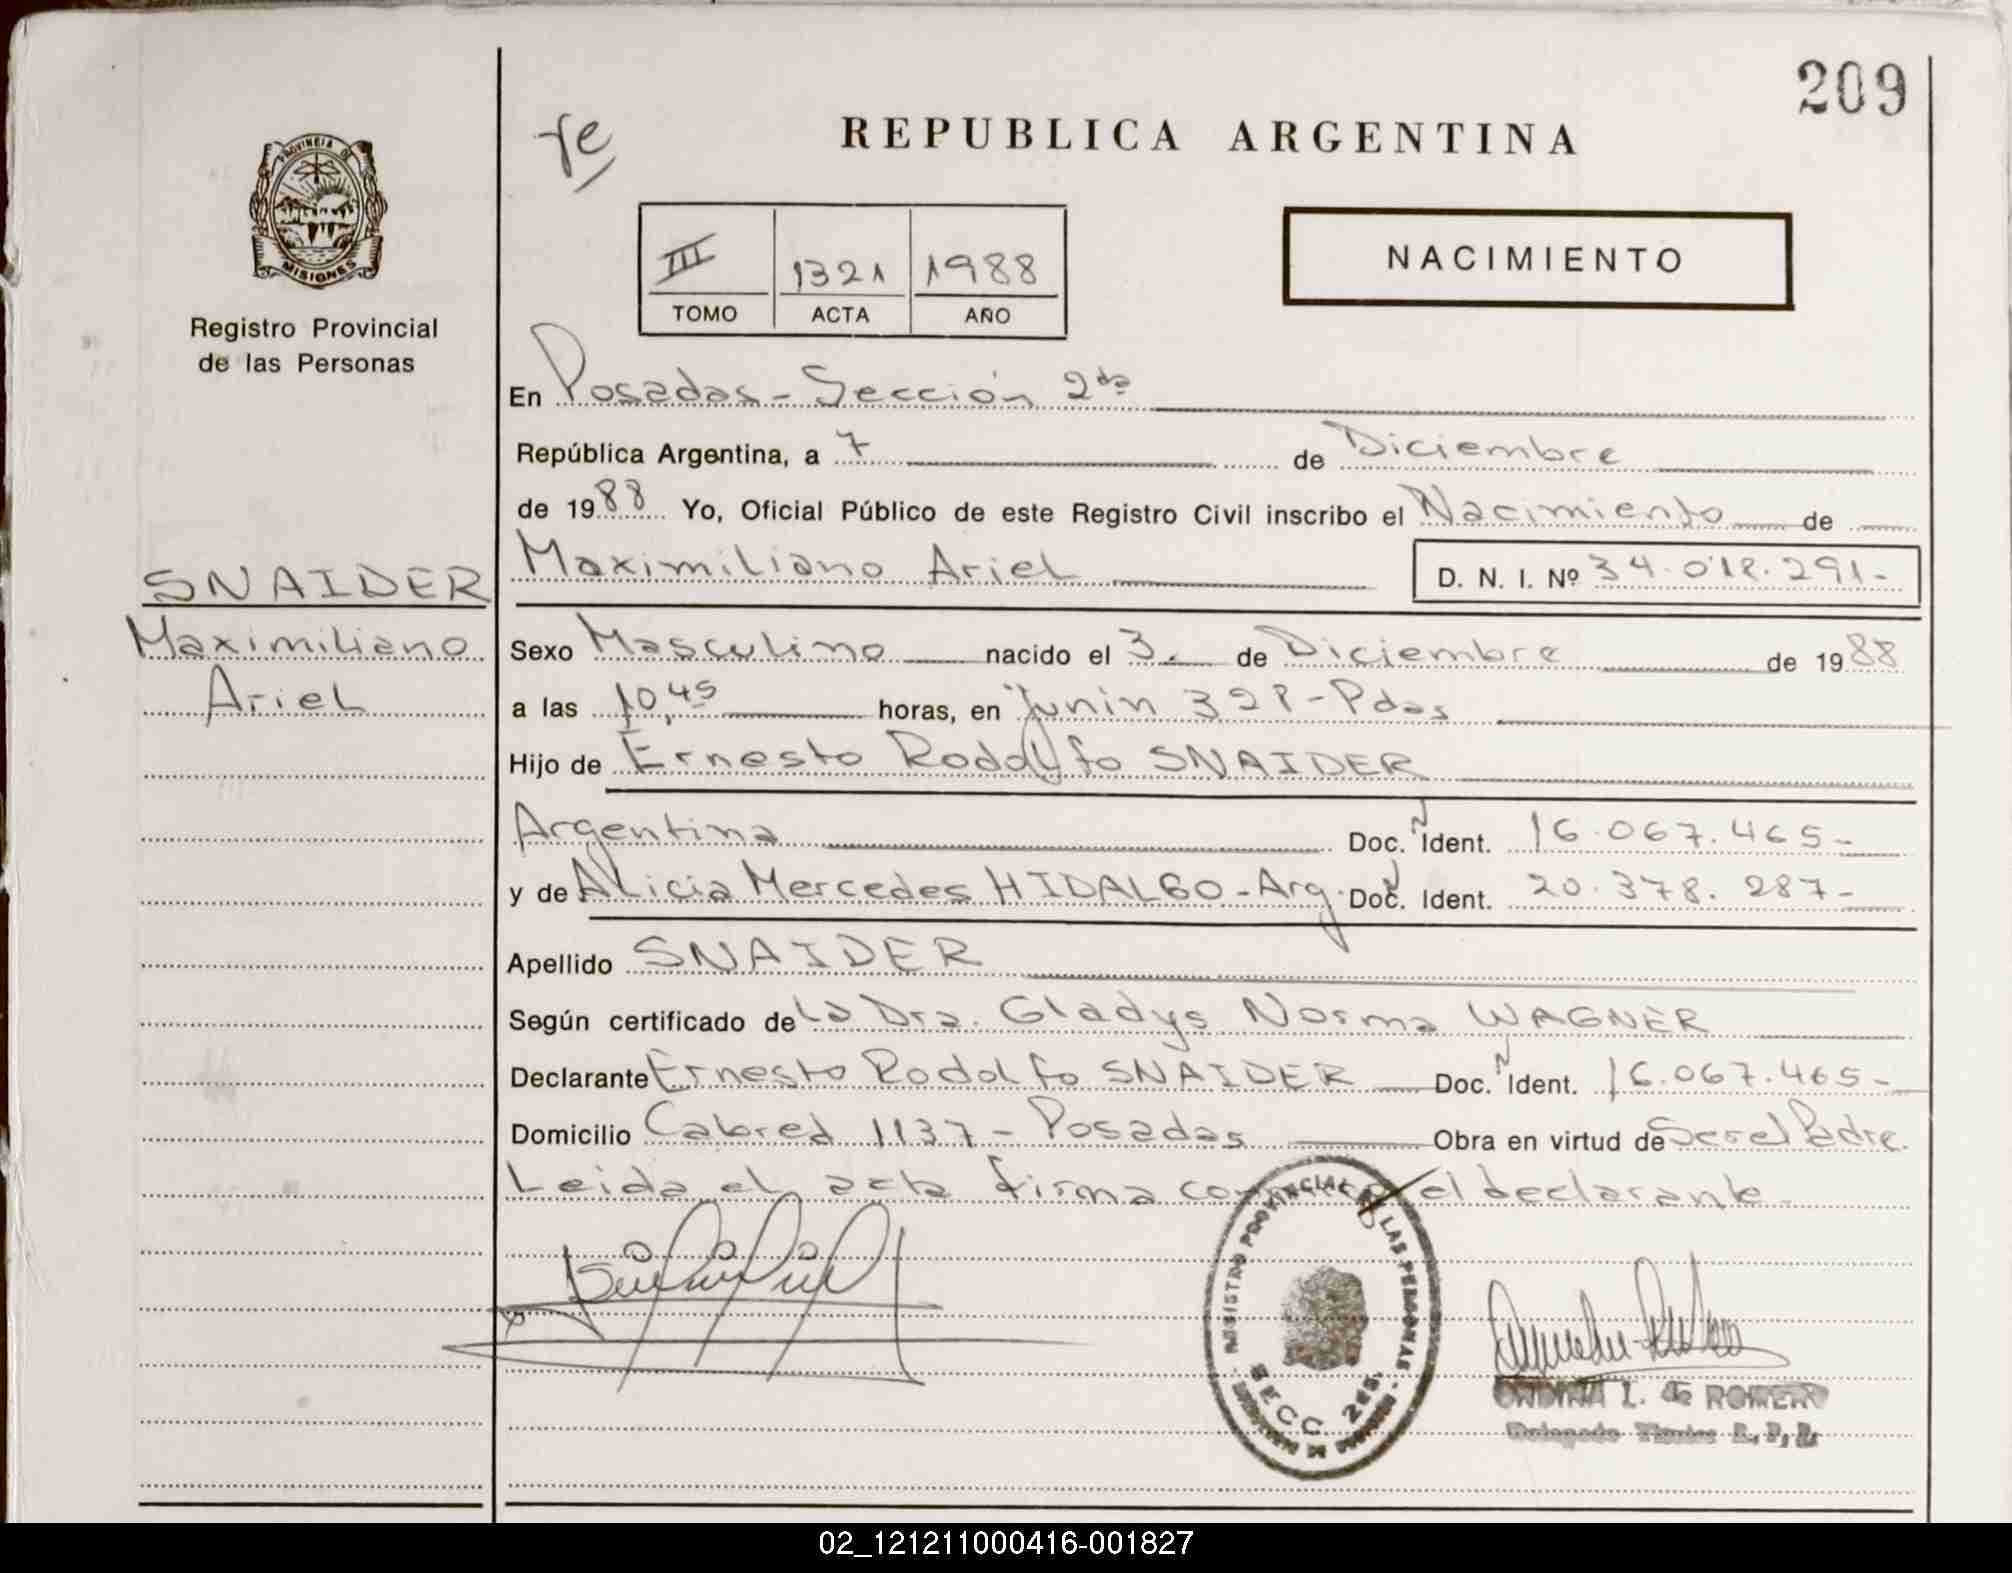 209
fe
REPUBLICA ARGENTINA
PROVINCIA DE
MISIONES
Registro Provincial
de las Personas
NACIMIENTO
III 1321 1988
TOMO ACTA AÑO
En Posadas - Sección 2da
República Argentina, a 7 de Diciembre
de 1988 Yo, Oficial Público de este Registro Civil inscribo el Nacimiento de
SNAIDER
Maximiliano
Ariel
Maximiliano Ariel D. N. I. Nº 34.018.291-
Sexo Masculino nacido el 3. de Diciembre de 1988
a las 10,45 horas, en Junin 328 - Pdas
Hijo de Ernesto Rodolfo SNAIDER
Argentina Doc. N Ident. 16.067.465-
y de Alicia Mercedes HIDALGO - Arg. Doc. N Ident. 20.378.287-
Apellido SNAIDER
Según certificado de la Dra. Gladys Norma WAGNER
Declarante Ernesto Rodolfo SNAIDER Doc. N Ident. 16.067.465-
Domicilio Cabred 1137 - Posadas Obra en virtud de Ser el Padre.
Leida el acta firma el declarante.
REGISTRO PROVINCIAL DE LAS PERSONAS
SECC. 2
ONDINA I. de ROMERO
Delegado Titular R. P. P.
02_121211000416-001827